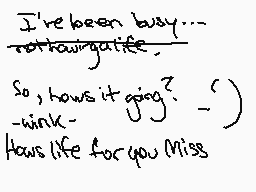 I've been busy...
not having a life.
So, hows it going?
-wink-
Hows life for you Miss